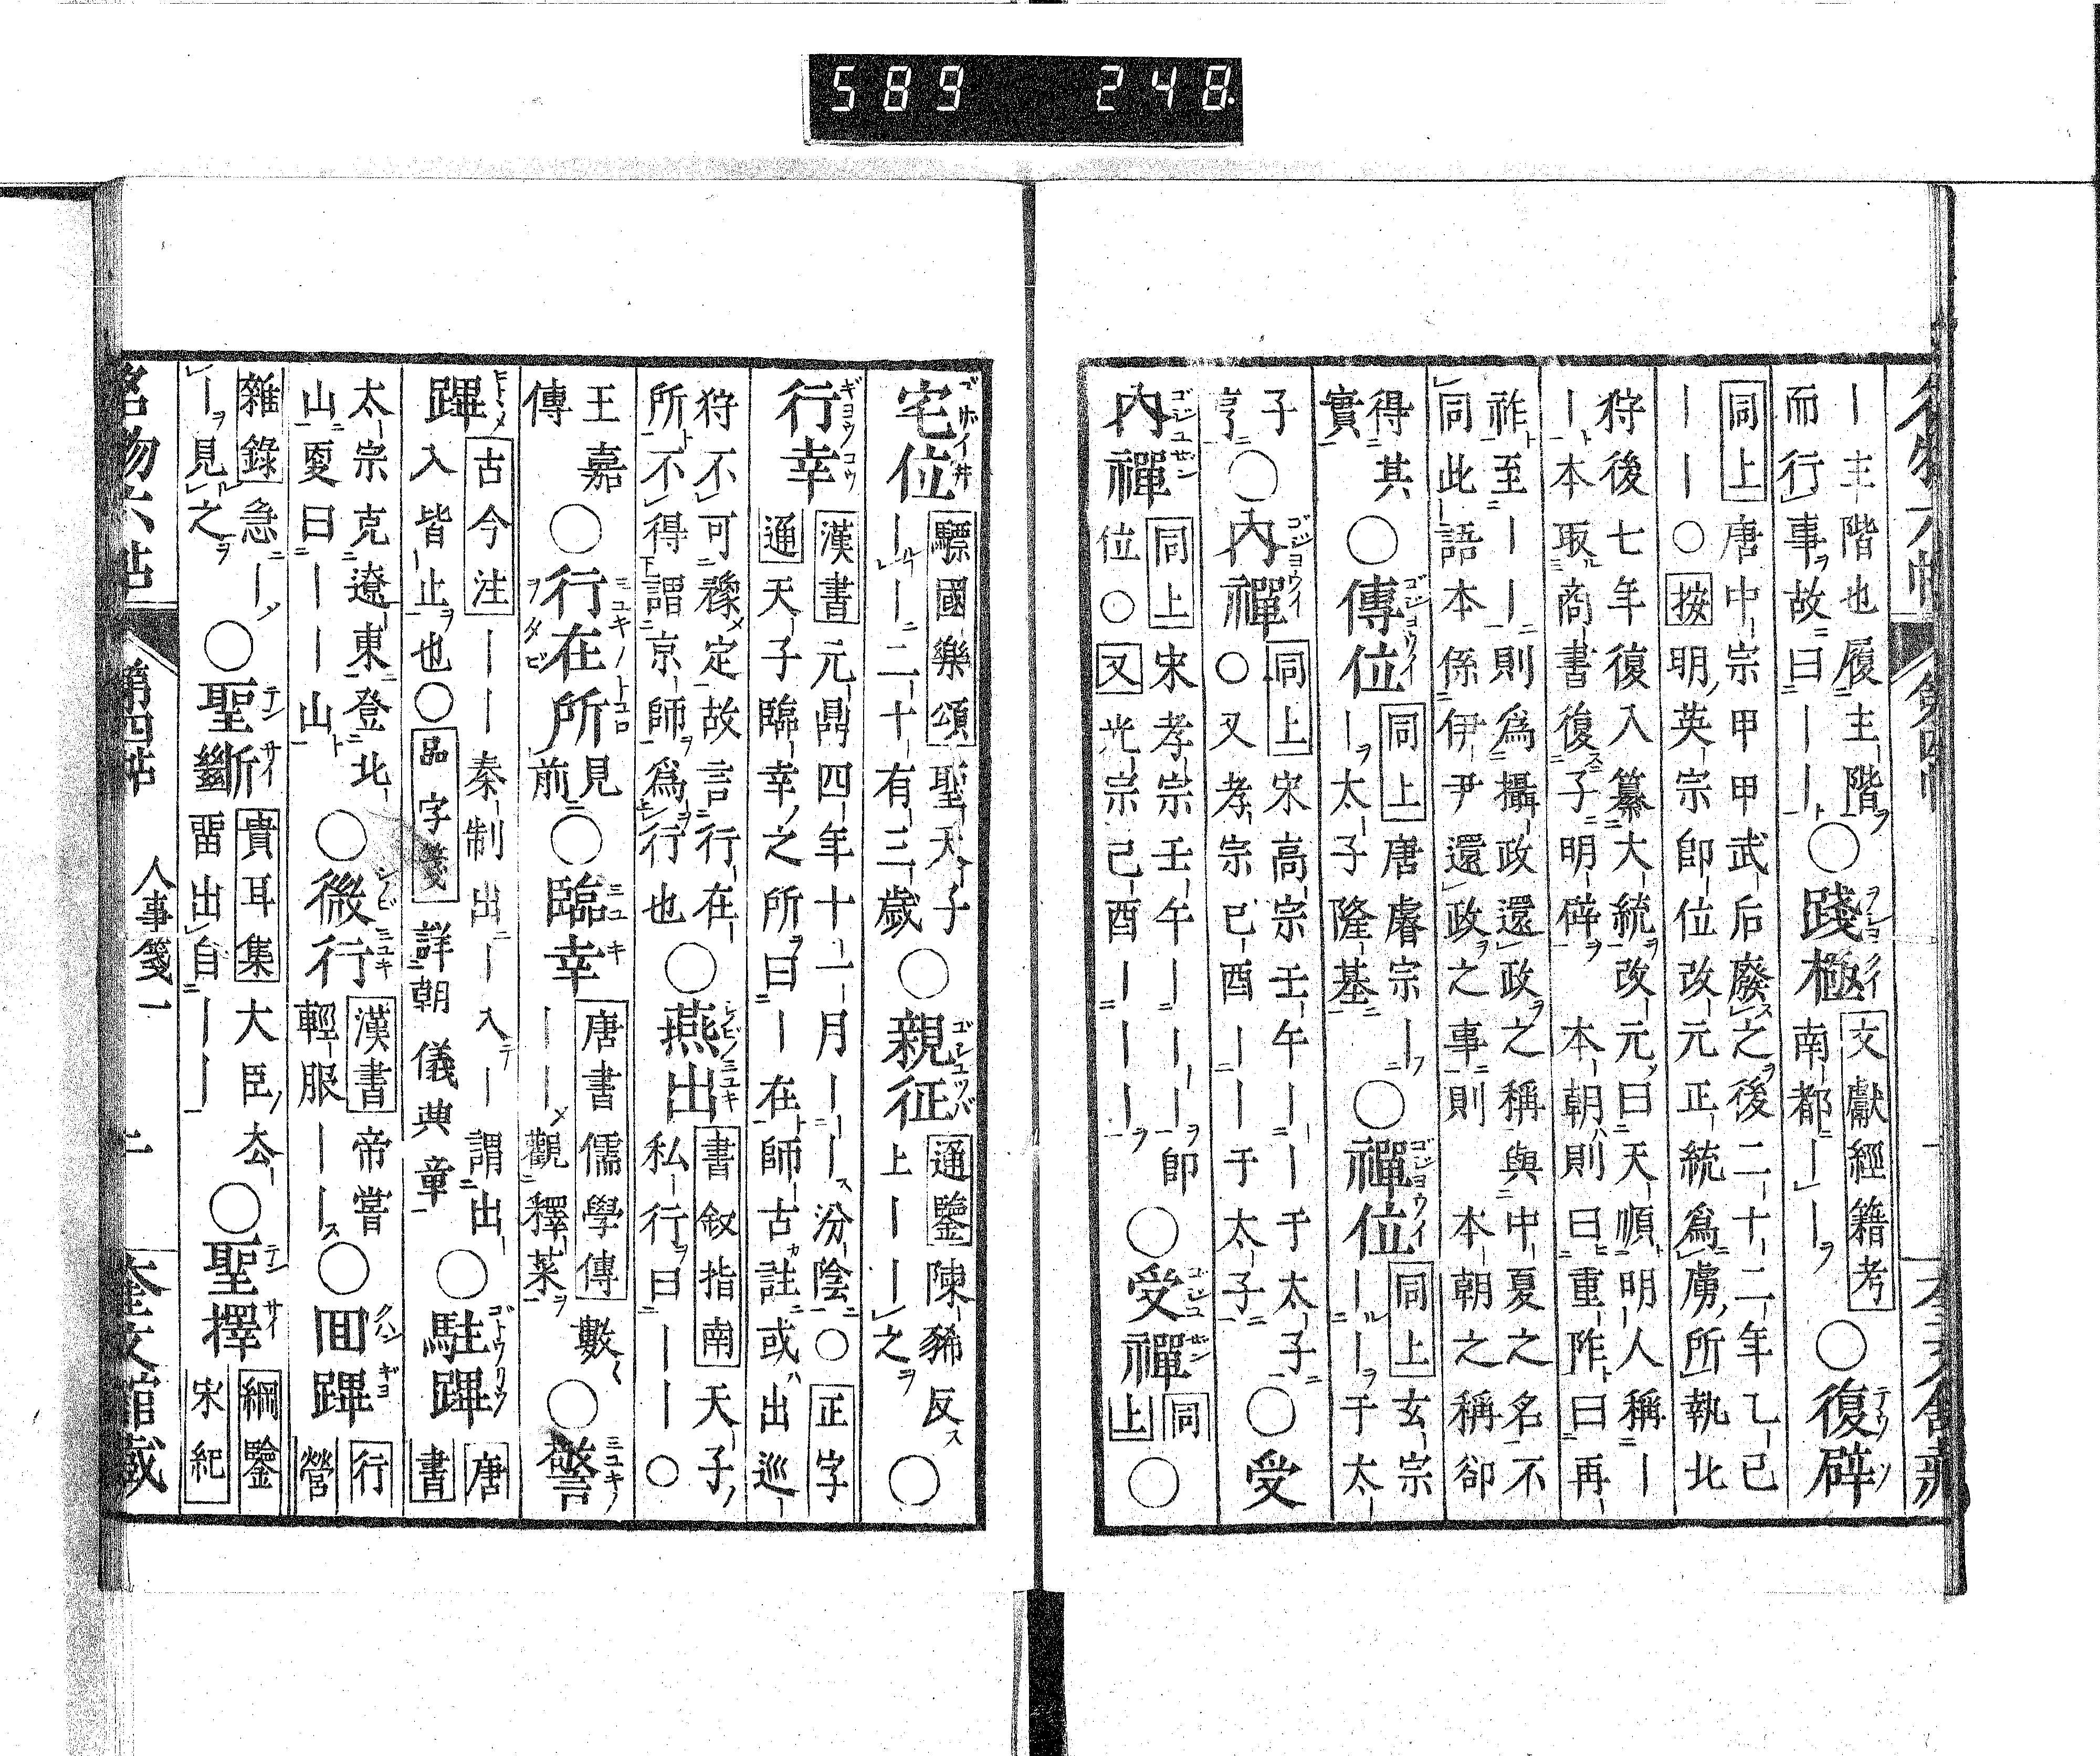 589 248
｜主階也履主階
而行事故曰｜｜○踐極 文獻經籍考 南都｜｜○復辟
同上 唐中宗甲甲武后廢之後二十二年乙巳
｜｜○按 明英宗卽位改元正統爲虜所執北
狩後七年復入纂大統改元曰天順明人稱｜
｜本取商書復子明辟 本朝則曰重祚曰再
祚至｜｜則爲攝政還政之稱與中夏之名不
同此語本係伊尹還政之事則 本朝之稱卻
得其
實○傳位 同上 唐睿宗｜太子隆基○禪位 同上 玄宗｜｜于太
子
亨○內禪 同上 宋高宗壬午｜｜于太子○又孝宗已酉｜｜于太子○受
內禪 同上 宋孝宗壬午｜｜｜卽位○又 光宗己酉｜｜｜○受禪 同上○
宅位 驃國樂頌 聖天子｜｜二十有三歲○親征 通鑒 陳豨反上｜｜之○
行幸 漢書 元鼎四年十一月｜｜汾陰○正字
通 天子臨幸之所曰｜在師古註或出巡
狩不可豫定故言行在
所不得謂京師爲行也○燕出 書敘指南 天子私行曰｜｜○
王嘉
傳○行在所 見前○臨幸 唐書儒學傳 數｜｜觀釋菜○警
蹕 古今注 ｜｜秦制出｜入｜謂出
入皆止也○品字箋 詳朝儀典章○駐蹕 唐書
太宗克遼東登北
山更曰｜｜山○微行 漢書 帝嘗輕服｜｜○回蹕 行營
雜錄 急｜
｜見之○聖斷 貴耳集 大臣厺留出自｜｜○聖擇 綱鑒 宋紀
名物六帖 第四帖 人事箋一 十 奎文館藏